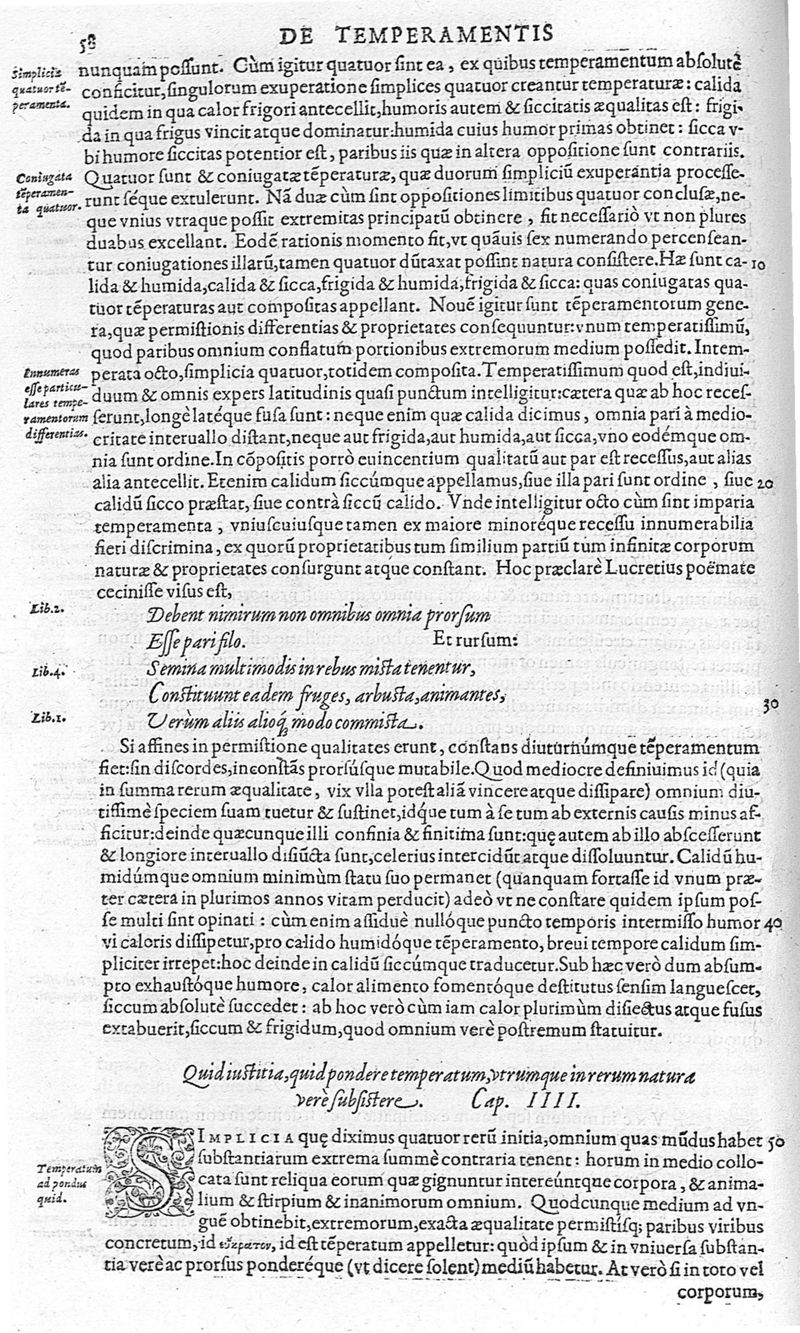 58
DE TEMPERAMENTIS
Simplicia
quatuor tē-
peramenta.
nunquam poſſunt. Cùm igitur quatuor ſint ea, ex quibus temperamentum abſolutè
conficitur, ſingulorum exuperatione ſimplices quatuor creantur temperaturæ: calida
quidem in qua calor frigori antecellit, humoris autem & ſiccitatis æqualitas eſt: frigi-
da in qua frigus vincit atque dominatur: humida cuius humor primas obtinet: ſicca v-
bi humore ſiccitas potentior eſt, paribus iis quæ in altera oppoſitione ſunt contrariis.
Coniugata
tēperamen-
ta quatuor.
Quatuor ſunt & coniugatæ tēperaturæ, quæ duorum ſimpliciū exuperantia proceſſe-
runt ſéque extulerunt. Nā duæ cùm ſint oppoſitiones limitibus quatuor concluſæ, ne-
que vnius vtraque poſſit extremitas principatū obtinere, fit neceſſariò vt non plures
duabus excellant. Eodē rationis momento fit, vt quāuis ſex numerando percenſean-
tur coniugationes illarū, tamen quatuor dūtaxat poſſint natura conſiſtere. Hæ ſunt ca- 10
lida & humida, calida & ſicca, frigida & humida, frigida & ſicca: quas coniugatas qua-
tuor tēperaturas aut compoſitas appellant. Nouē igitur ſunt tēperamentorum gene-
ra, quæ permiſtionis differentias & proprietates conſequuntur: vnum temperatiſſimū,
quod paribus omnium conflatum portionibus extremorum medium poſſedit. Intem-
Ennumeras
eſſe particu-
lares tempe-
ramentorum
differentias.
perata octo, ſimplicia quatuor, totidem compoſita. Temperatiſſimum quod eſt, indiui-
duum & omnis expers latitudinis quaſi punctum intelligitur: cætera quæ ab hoc receſ-
ſerunt, longè latéque fuſa ſunt: neque enim quæ calida dicimus, omnia pari à medio-
critate interuallo diſtant, neque aut frigida, aut humida, aut ſicca, vno eodémque om-
nia ſunt ordine. In cōpoſitis porrò euincentium qualitatū aut par eſt receſſus, aut alias
alia antecellit. Etenim calidum ſiccúmque appellamus, ſiue illa pari ſunt ordine, ſiue 20
calidū ſicco præſtat, ſiue contrà ſiccū calido. Vnde intelligitur octo cùm ſint imparia
temperamenta, vniuſcuiuſque tamen ex maiore minoréque receſſu innumerabilia
fieri diſcrimina, ex quorū proprietatibus tum ſimilium partiū tum infinitæ corporum
naturæ & proprietates conſurgunt atque conſtant. Hoc præclarè Lucretius poëmate
ceciniſſe viſus eſt,
Lib.2.
Debent nimirum non omnibus omnia prorſum
Eſſe pari filo. Et rurſum:
Lib.4.
Semina multimodis in rebus miſta tenentur,
Conſtituunt eadem fruges, arbuſta, animantes, 30
Lib.1.
Verùm aliis alioq́; modo commiſta.
Si affines in permiſtione qualitates erunt, cōnſtans diuturnúmque tēperamentum
fiet: ſin diſcordes, inconſtās prorſúſque mutabile. Quod mediocre definiuimus id (quia
in ſumma rerum æqualitate, vix vlla poteſt aliā vincere atque diſſipare) omnium diu-
tiſſimè ſpeciem ſuam tuetur & ſuſtinet, idq́ue tum à ſe tum ab externis cauſis minus af-
ficitur: deinde quæcunque illi confinia & finitima ſunt: quę autem ab illo abſceſſerunt
& longiore interuallo diſiūcta ſunt, celerius intercidūt atque diſſoluuntur. Calidū hu-
midúmque omnium minimùm ſtatu ſuo permanet (quanquam fortaſſe id vnum præ-
ter cætera in plurimos annos vitam perducit) adeò vt ne conſtare quidem ipſum poſ-
ſe multi ſint opinati: cùm enim aſſiduè nullóque puncto temporis intermiſſo humor 40
vi caloris diſſipetur, pro calido humidóque tēperamento, breui tempore calidum ſim-
pliciter irrepet: hoc deinde in calidū ſiccúmque traducetur. Sub hæc verò dum abſum-
pto exhauſtóque humore, calor alimento fomentóque deſtitutus ſenſim langueſcet,
ſiccum abſolutè ſuccedet: ab hoc verò cùm iam calor plurimùm diſiectus atque fuſus
extabuerit, ſiccum & frigidum, quod omnium verè poſtremum ſtatuitur.
Quid iuſtitia, quid pondere temperatum, vtrumque in rerum natura
verè ſubſiſtere. Cap. IIII.
SIMPLICIA quę diximus quatuor rerū initia, omnium quas mūdus habet 50
ſubſtantiarum extrema ſummè contraria tenent: horum in medio collo-
Temperatum
ad pondus
quid.
cata ſunt reliqua eorum quæ gignuntur intereúntque corpora, & anima-
lium & ſtirpium & inanimorum omnium. Quodcunque medium ad vn-
guē obtinebit, extremorum, exacta æqualitate permiſtíſq; paribus viribus
concretum, id εὔκρατον, id eſt tēperatum appelletur: quòd ipſum & in vniuerſa ſubſtan-
tia verè ac prorſus ponderéque (vt dicere ſolent) mediū habetur. At verò ſi in toto vel
corporum,